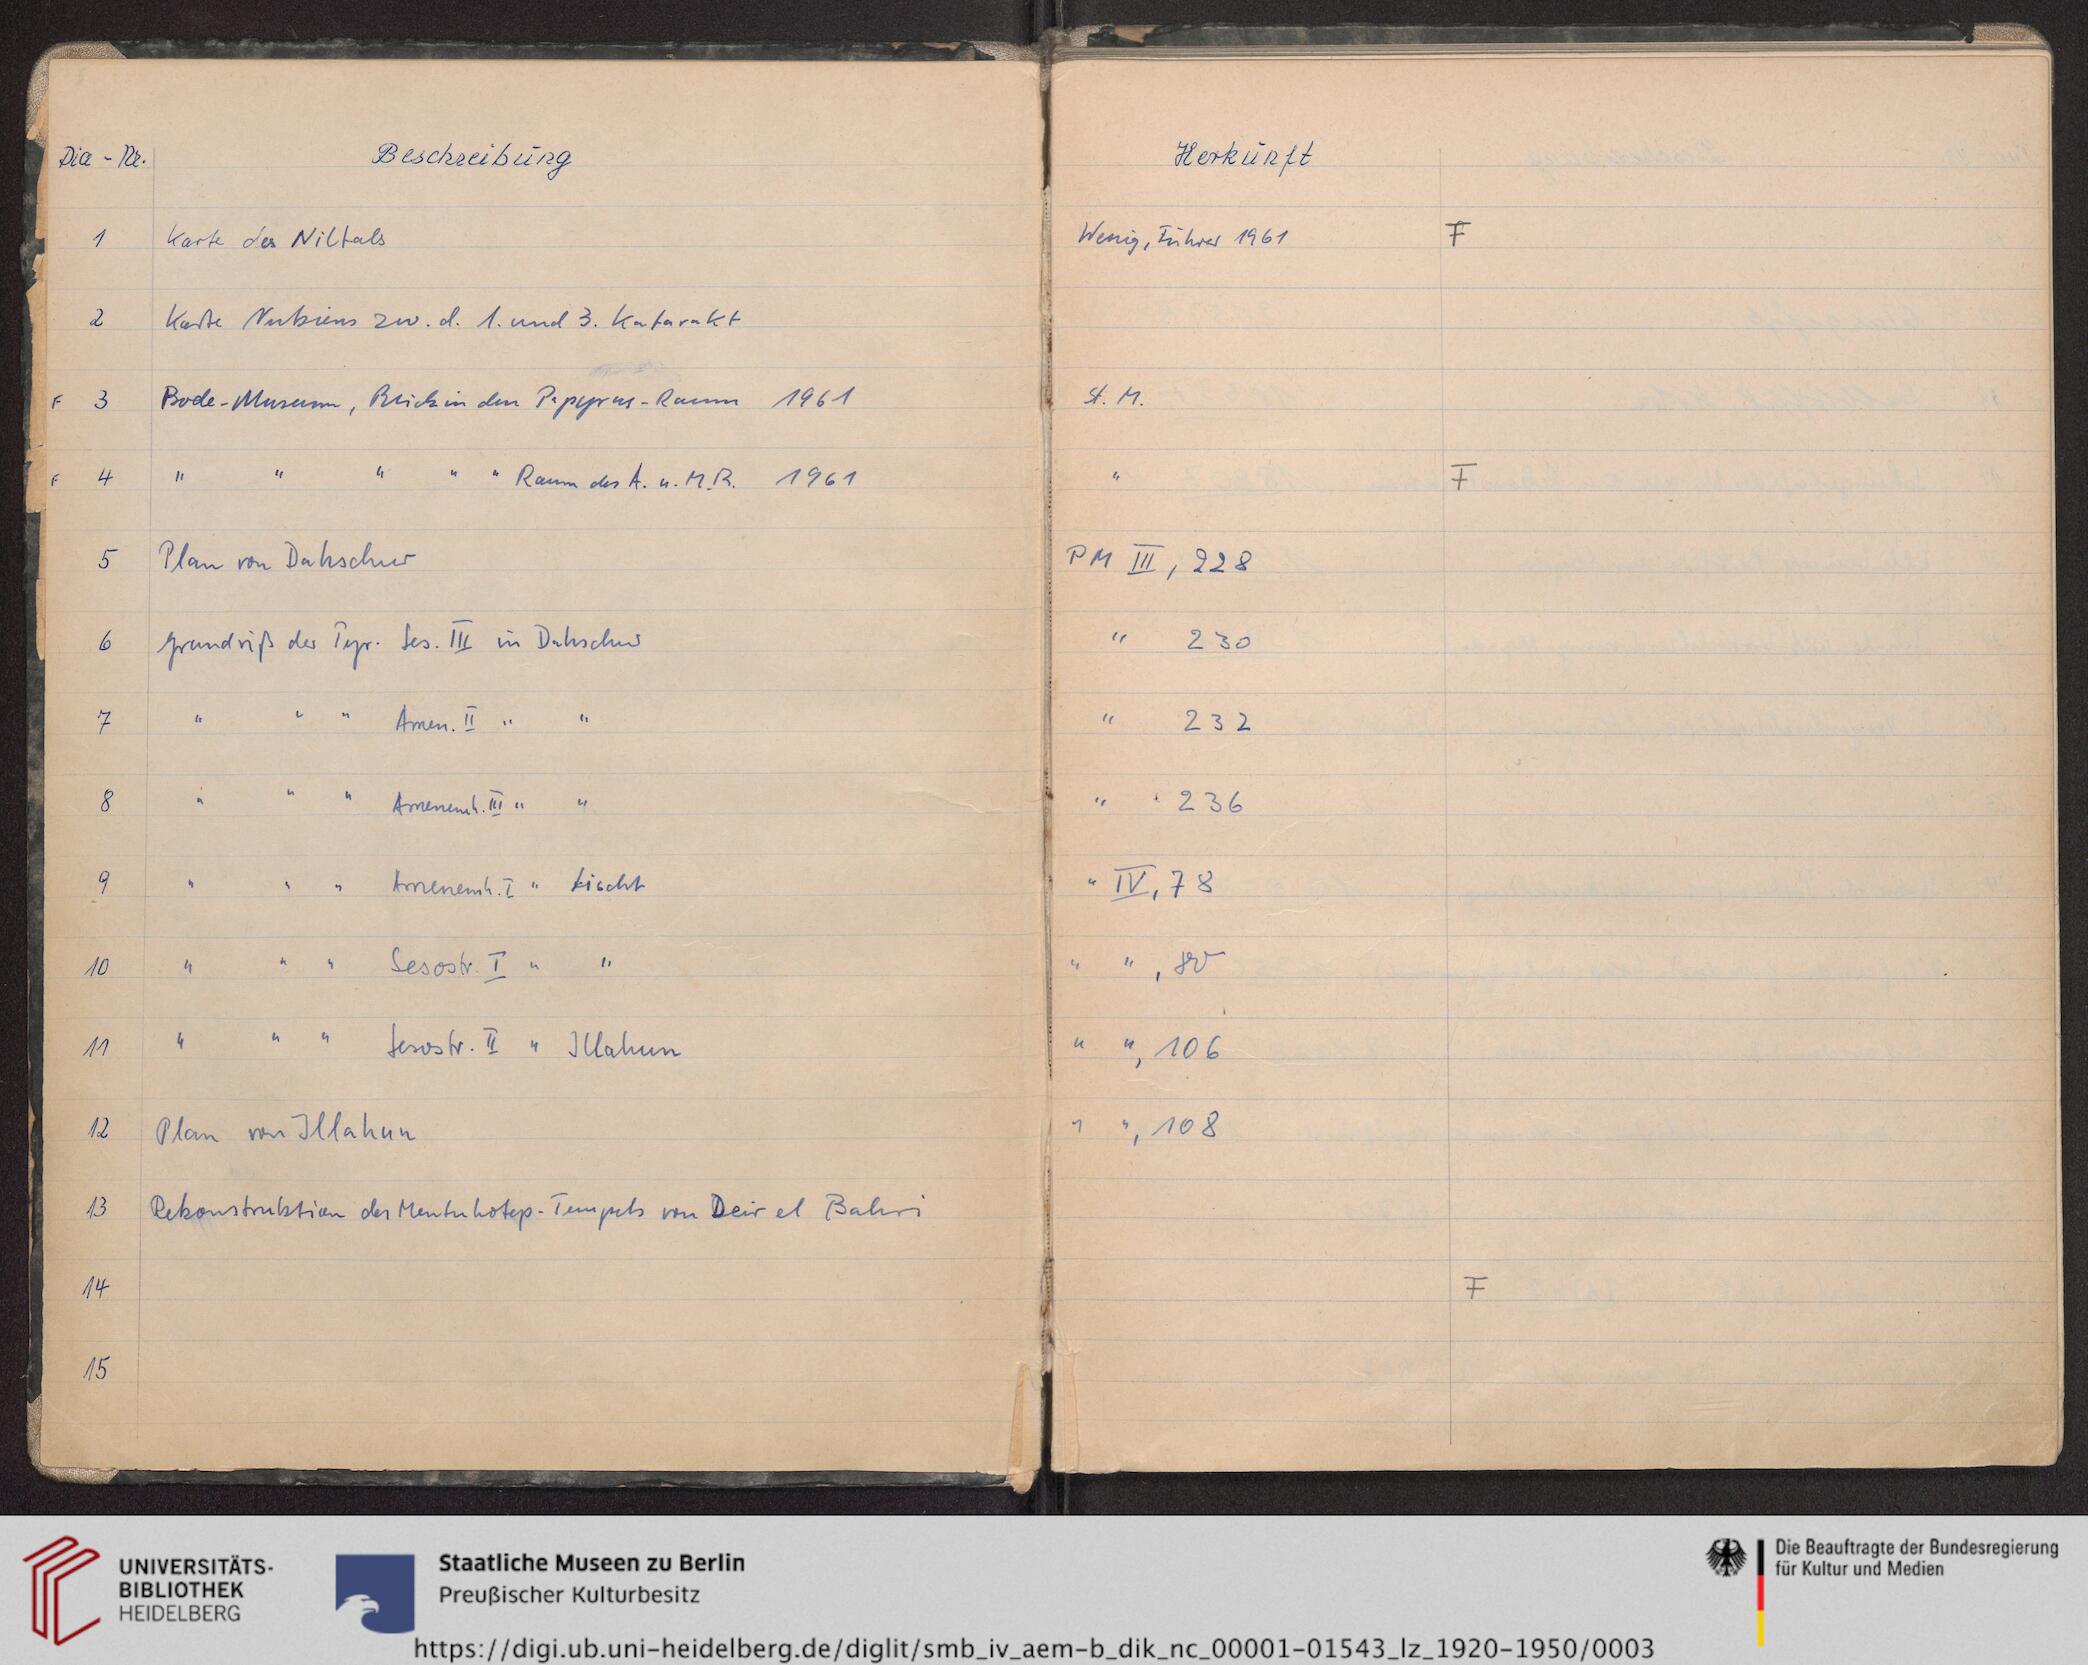 Dia-Nr. Beschreibung Herkunft
1 Karte des Niltals Wenig, Führer 1961 F
2 Karte Nubiens zw. d. 1. und 3. Katarakt
F 3 Bode-Museum, Blick in den Papyrus-Raum 1961 St. M.
F 4 " " " " " Raum des A. u. M.R. 1961 " F
5 Plan von Dahschur PM III, 228
6 Grundriß der Pyr. Ses. III in Dahschur " 230
7 " " " Amen. II " " " 232
8 " " " Amenemh. III " " " 236
9 " " " Amenemh. I " Lischt " IV, 78
10 " " " Sesostr. I " " " " , 80
11 " " " Sesostr. II " Illahun " ", 106
12 Plan von Illahun " ", 108
13 Rekonstruktion des Mentuhotep-Tempels von Deir el Bahri
14 F
15
UNIVERSITÄTS-
BIBLIOTHEK
HEIDELBERG
Staatliche Museen zu Berlin
Preußischer Kulturbesitz
Die Beauftragte der Bundesregierung
für Kultur und Medien
https://digi.ub.uni-heidelberg.de/diglit/smb_iv_aem-b_dik_nc_00001-01543_lz_1920-1950/0003